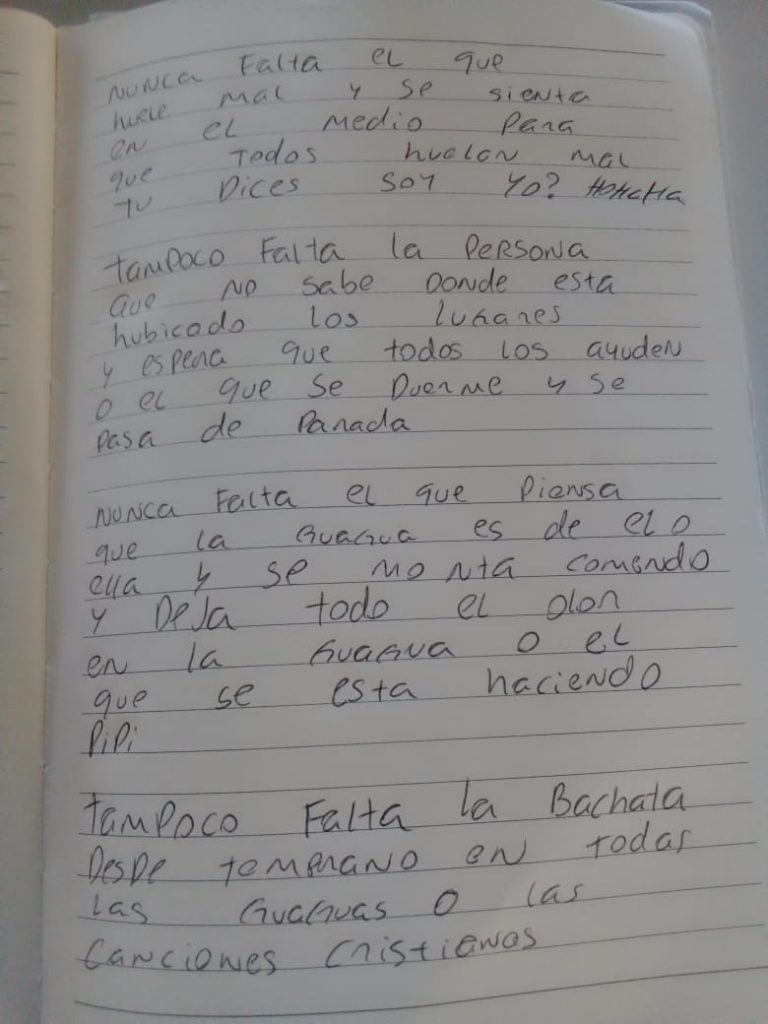 NUNCA Falta el que
huele mal y se sienta
en el medio para
que todos huelan mal
tu Dices soy yo? HaHaHa
tampoco Falta la persona
que no sabe donde esta
hubicado los lugares
y espera que todos los ayuden
o el que se Duerme y se
pasa de Parada
Nunca Falta el que piensa
que la Guagua es de el o
ella y se monta comendo
y Deja todo el olor
en la Guagua o el
que se esta haciendo
pipi
tampoco Falta la Bachata
Desde temprano en todas
las Guaguas o las
Canciones Cristianas